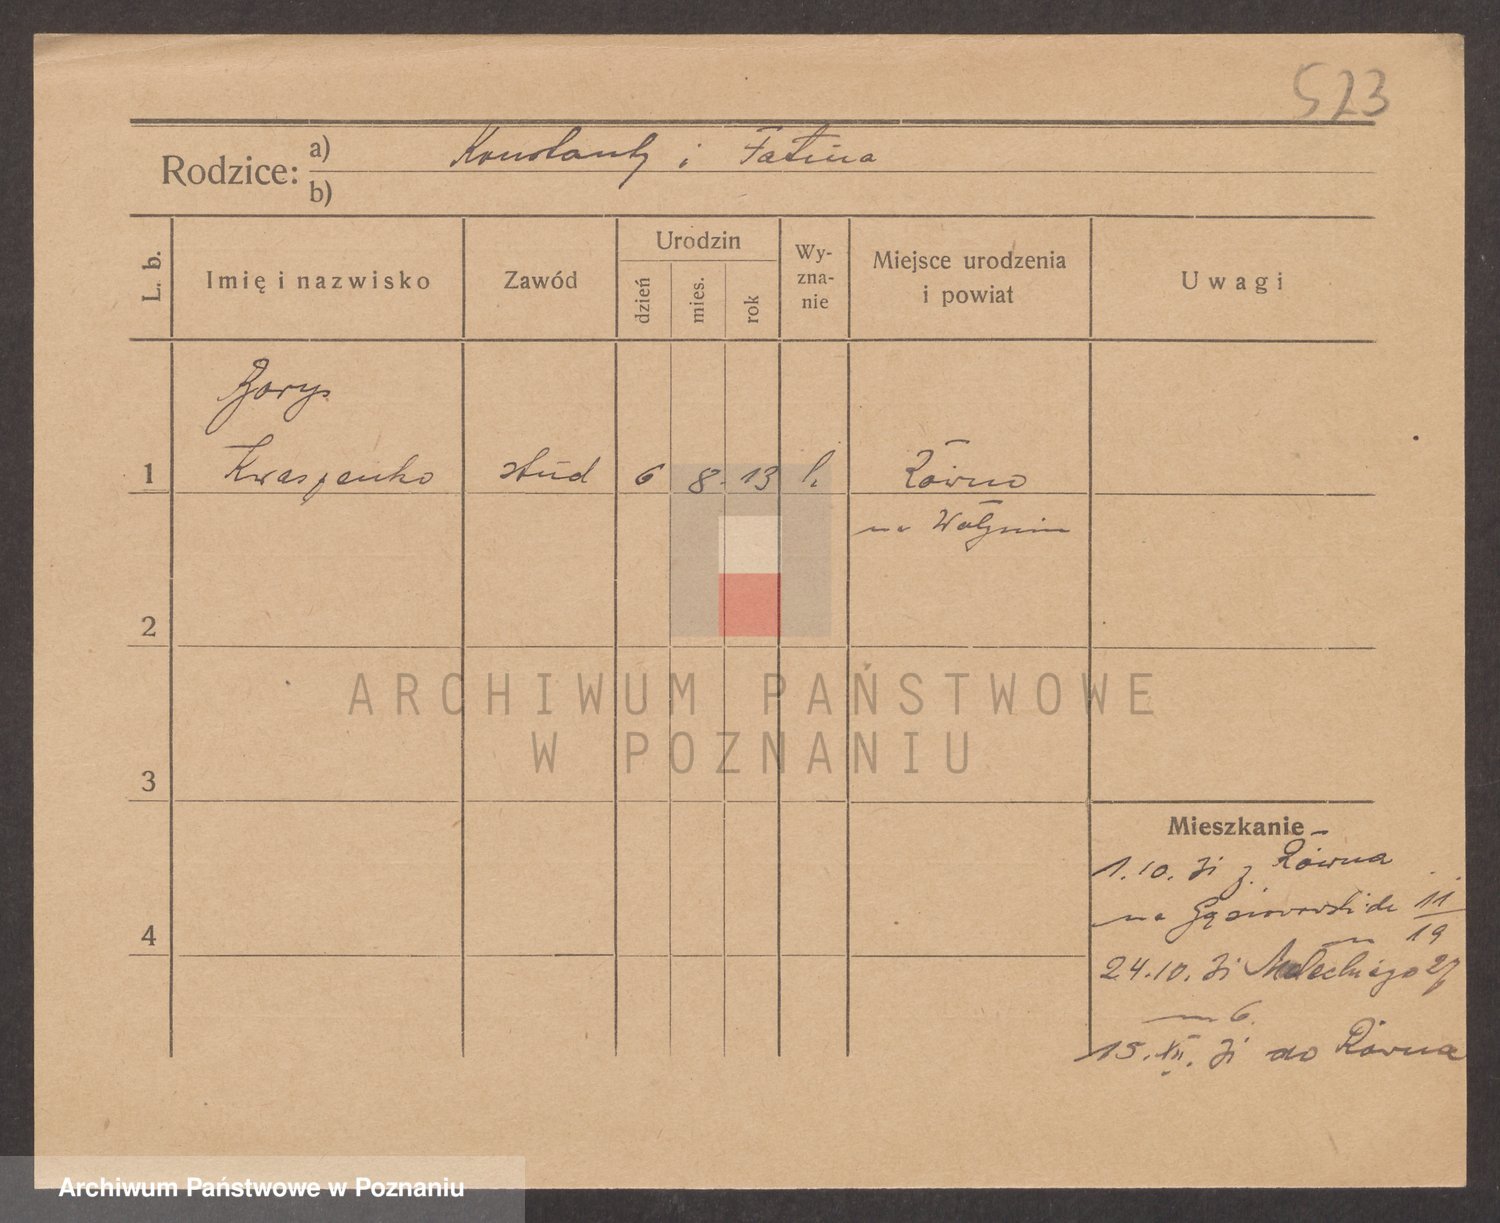 523
Rodzice: a) Konstanty i Fatina
b)
L. b.
Imię i nazwisko
Zawód
Urodzin
dzień
mies.
rok
Wy-
zna-
nie
Miejsce urodzenia
i powiat
Uwagi
Borys
1 Kwaspenko stud 6 8. 13 Równo
na Wołyniu
2
3
4
Mieszkanie
1.10. 31 z Równa
na Gąsiorowskich 11/19
24.10. 31 Małeckiego 27
m 6.
15. XII. 31 do Równa
ARCHIWUM PAŃSTWOWE
W POZNANIU
Archiwum Państwowe w Poznaniu